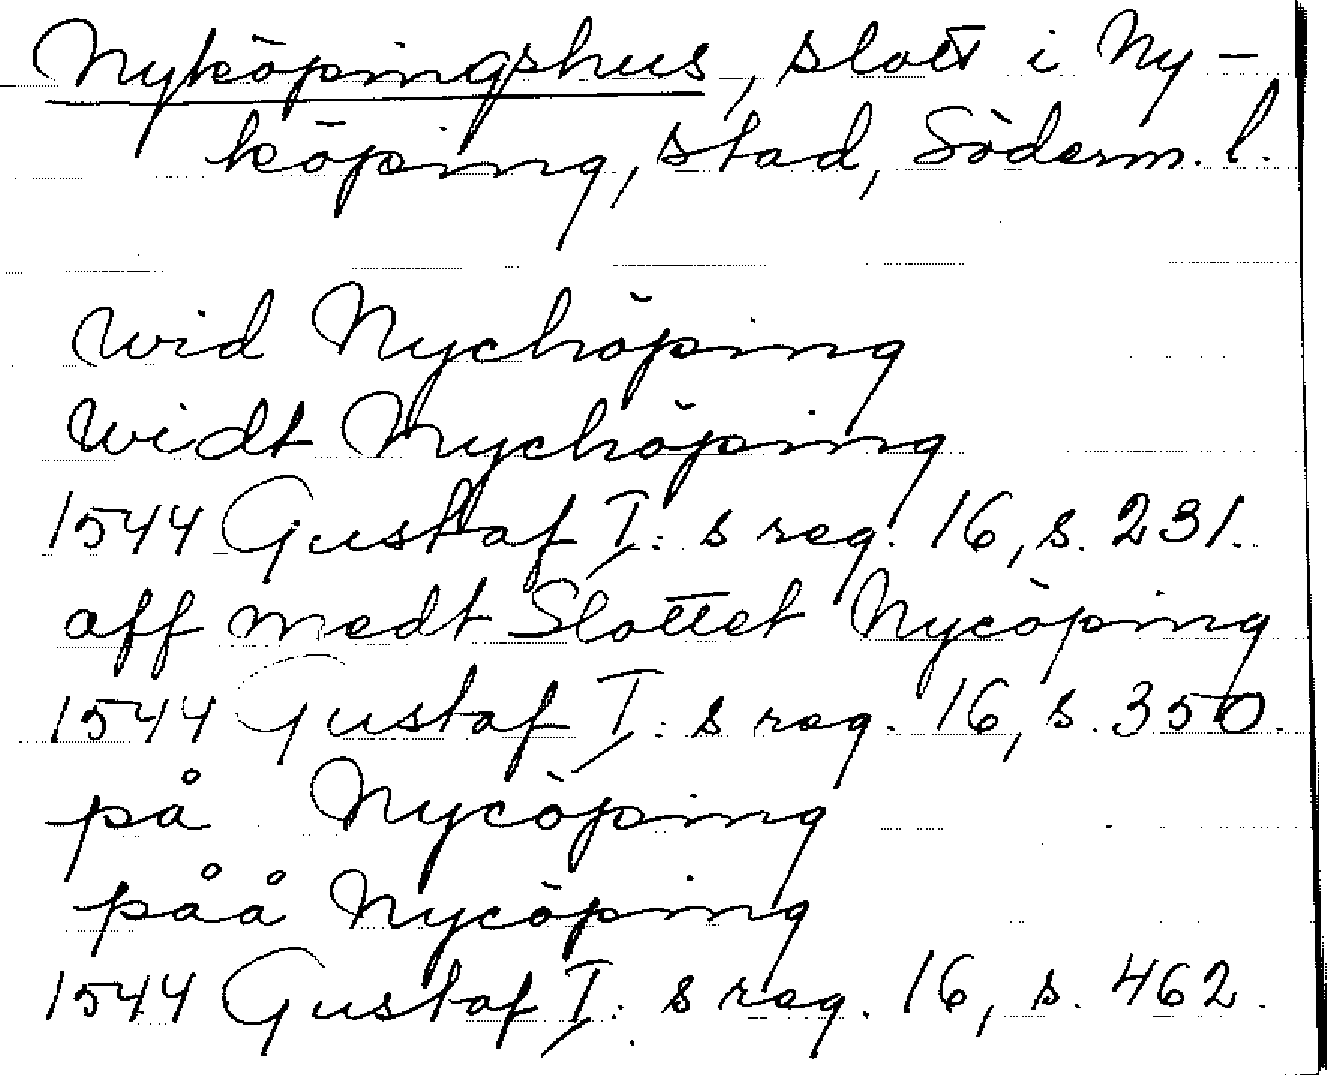 Nyköpingshus, slott i Ny-
köping, stad, Söderm. l.
wid Nychöping
widt Nychöping
1544 Gustaf I: s reg. 16, s. 231.
aff medt Slottet Nycöping
1544 Gustaf I: s reg. 16, s. 350.
på Nycöping
påå Nycöping
1544 Gustaf I: s reg. 16, s. 462.